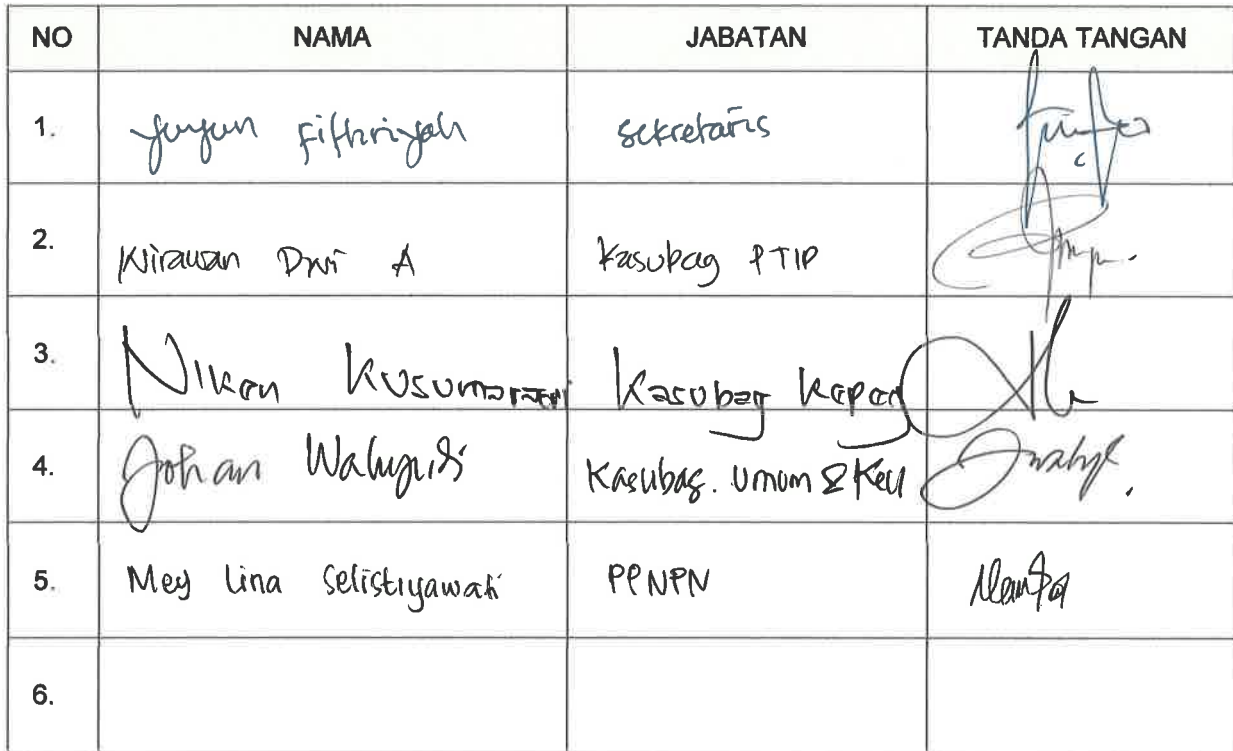 NO NAMA JABATAN TANDA TANGAN
1. Yuyun Fifthriyah sekretaris
2. Wirawan Dwi A Kasubag PTIP
3. Niken Kusumarani Kasubag Kepeg
4. Johan Wahyudi Kasubag. Umum & Keu
5. Mey Lina Selistiyawati PPNPN
6.